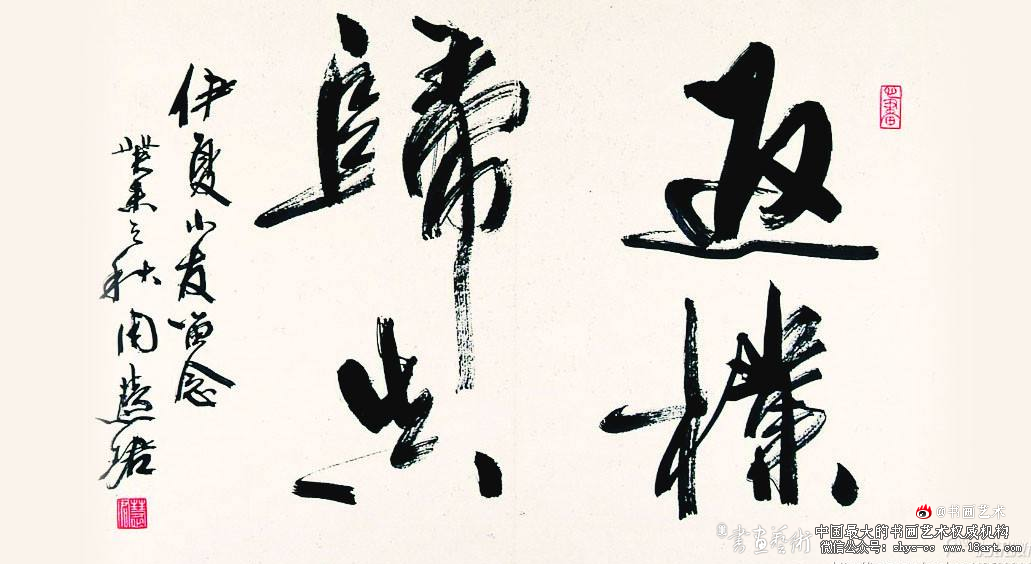 返樸
歸真
伊夏小友留念
癸未之秋周慧珺
@书画艺术
書畫藝術
中国最大的书画艺术权威机构
微信公众号：shys-cc www.18art.com